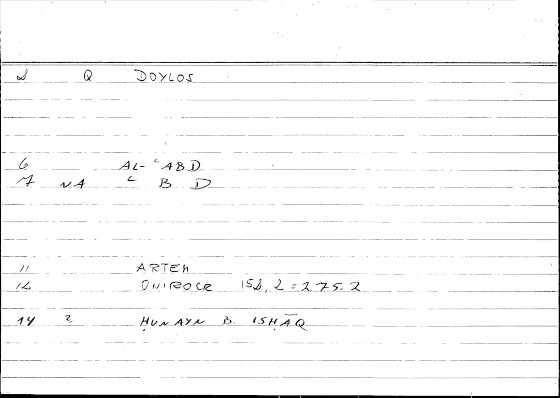 2 Q DOYLOS
6 AL- ʿABD
7 NA ʿ B D
11 ARTEM
12 ONIROCR 152, 2 = 275.2
14 2 ḤUNAYN B. ISḤĀQ